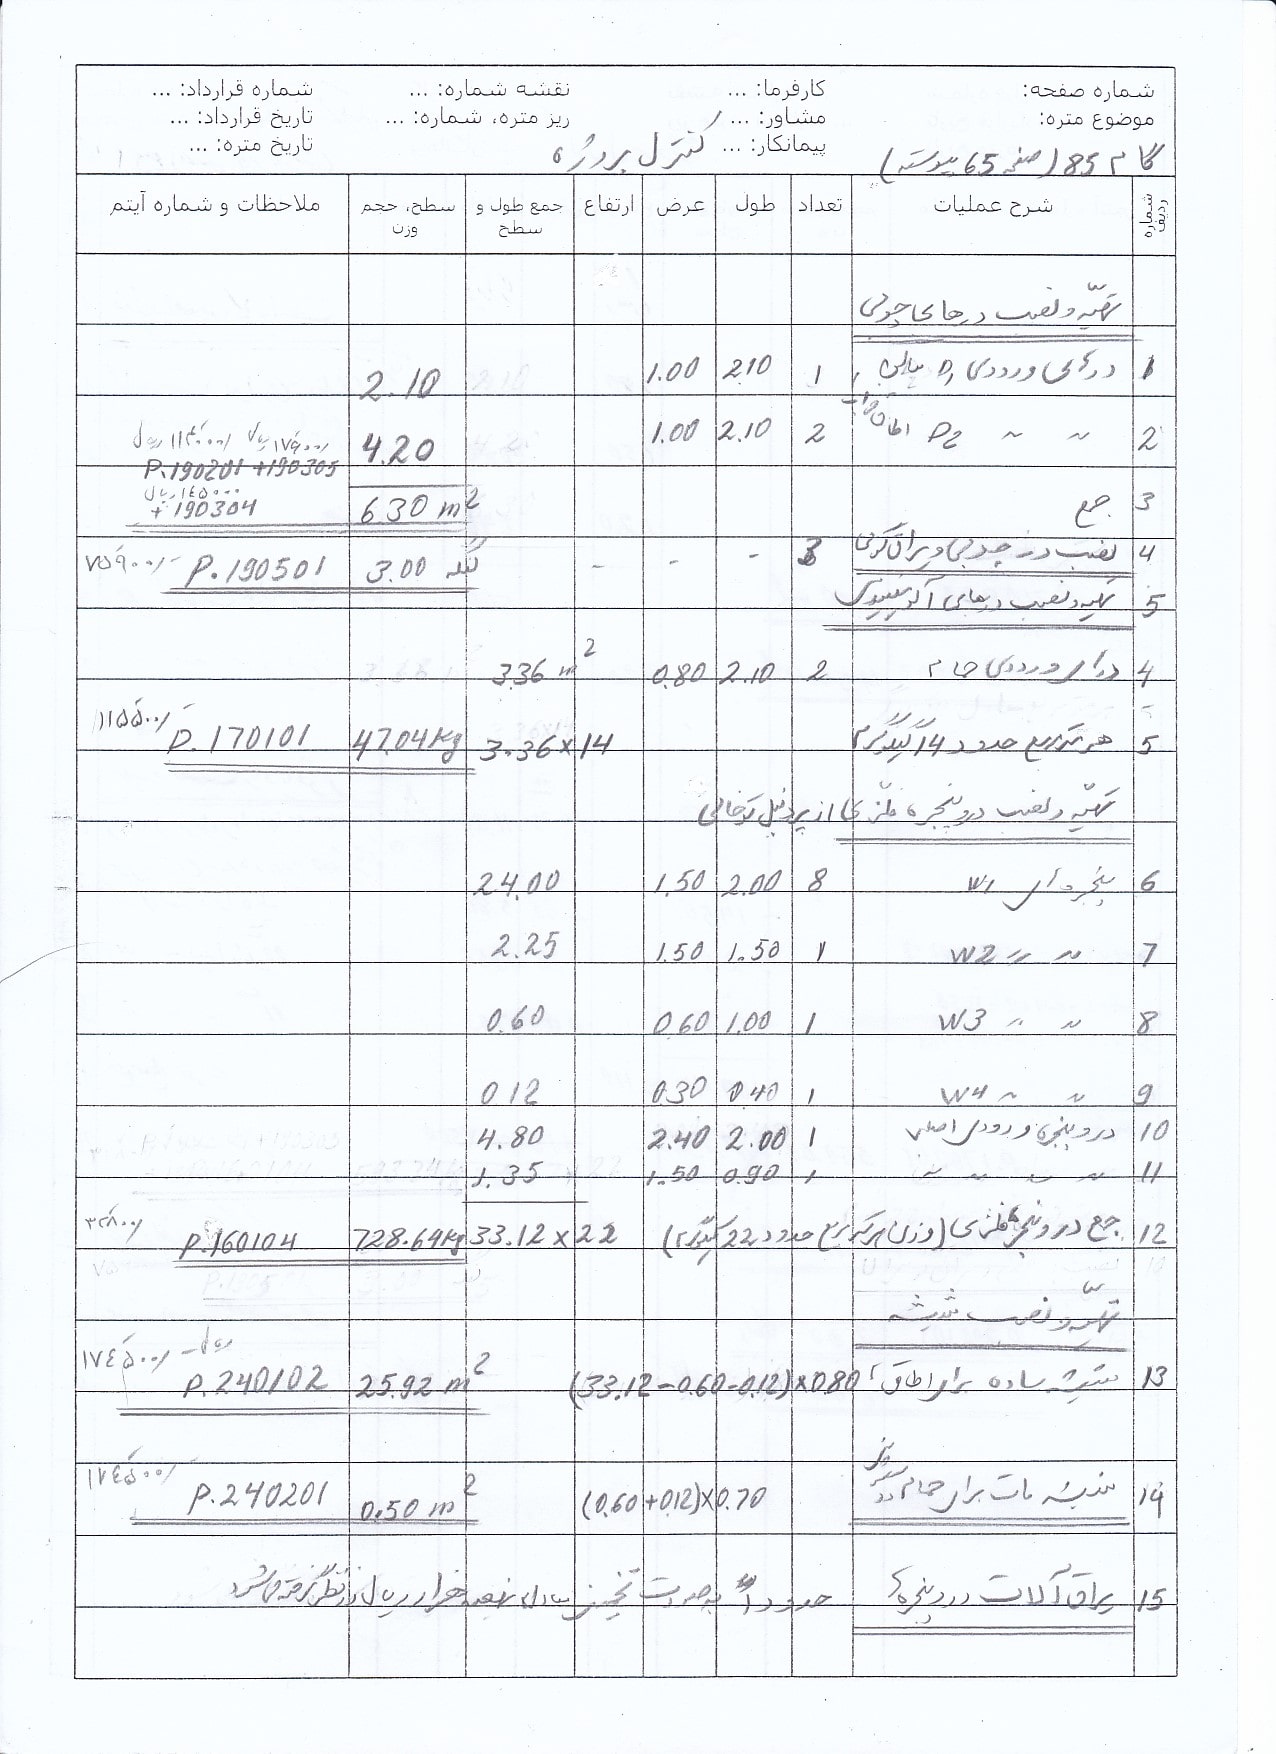 شماره صفحه:
کارفرما: ...
نقشه شماره: ...
شماره قرارداد: ...
موضوع متره:
مشاور: ...
ریز متره، شماره: ...
تاریخ قرارداد: ...
پیمانکار: ...
تاریخ متره: ...
گام 85 (صفحه 65 پیوسته)
کنترل پروژه
شماره ردیف
شرح عملیات
تعداد
طول
عرض
ارتفاع
جمع طول و سطح
سطح، حجم وزن
ملاحظات و شماره آیتم
تهیّه و نصب درهای چوبی
1 در های ورودی D1 2.10 1.00 2.10
2 〃 〃 D2 اطاق خواب 2 2.10 1.00 4.20
P.190201 + 190305
3 جمع 6.30 m2 + 190304
4 نصب در چوبی و یراق کوبی 3 - - - 3.00 لنگه P.190501 ۷۵۹۰۰/-
5 تهیه و نصب درهای آلومینیومی
4 درهای ورودی حمام 2 2.10 0.80 3.36 m2
5 هر متر مربع حدود 14 کیلوگرم 3.36 x 14 47.04 Kg P.170101 ۱۱۵۵۰۰/-
تهیّه و نصب در و پنجره فلزی از پروفیل توخالی
6 پنجره های W1 8 2.00 1.50 24.00
7 〃 〃 W2 1 1.50 1.50 2.25
8 〃 〃 W3 1 1.00 0.60 0.60
9 〃 〃 W4 1 0.40 0.30 0.12
10 در و پنجره ورودی اصلی 1 2.00 2.40 4.80
11 〃 〃 〃 〃 1 0.90 1.50 1.35
12 جمع در و پنجره فلزی (وزن هر متر مربع حدود 22 کیلوگرم) 33.12 x 22 728.64 Kg P.160104
تهیّه و نصب شیشه
13 شیشه ساده برای اطاق ها (33.12 - 0.60 - 0.12) x 0.80 25.92 m2 P.240102 ۱۷٤۵۰۰/- ریال
14 شیشه مات برای حمام (0.60 + 0.12) x 0.70 0.50 m2 P.240201 ۱۷٤۵۰۰/-
15 یراق آلات در و پنجره ها حدوداً به صورت تخمین معادل نهصد هزار ریال در نظر گرفته می شود